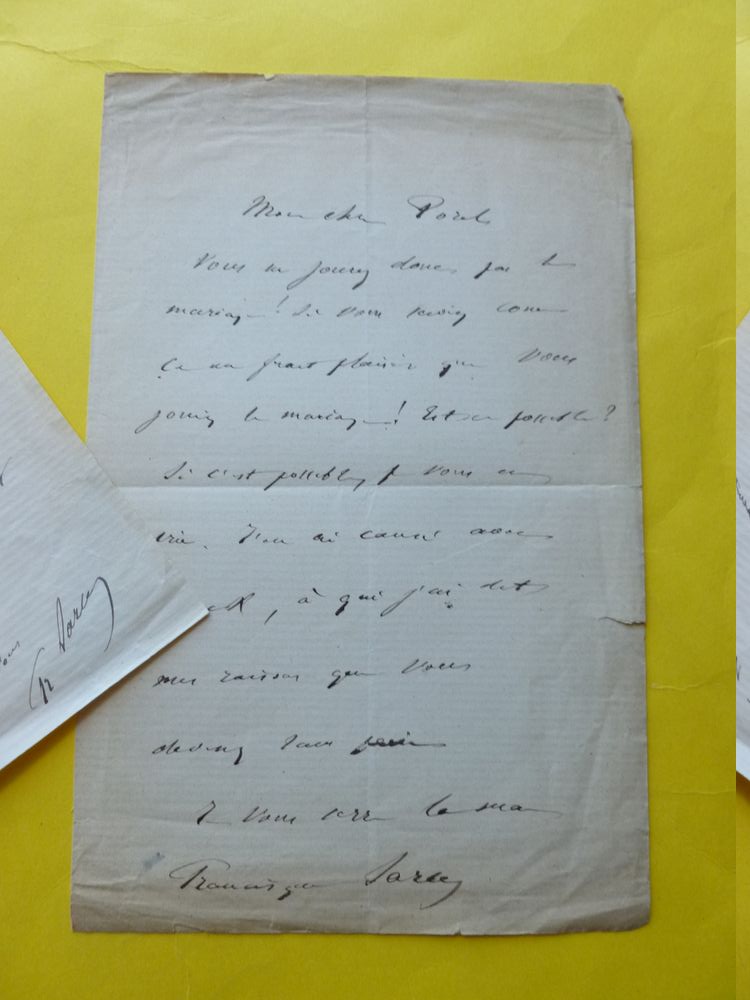 Mon cher Porel
Vous ne jouez donc pas le
mariage! Si vous saviez comme
ça me ferait plaisir que vous
jouiez le mariage! Est-ce possible?
Si c'est possible, je vous en
prie. J'en ai causé avec
, à qui j'ai dit
mes raisons que vous
devinez sans peine
Je vous serre la main
Francisque Sarcey
Fr Sarcey